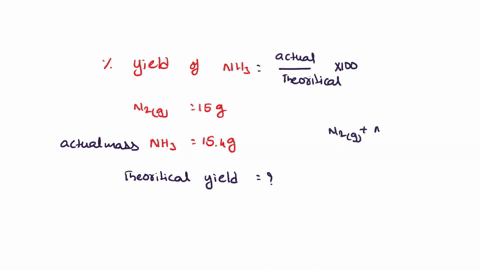 % yield of NH3 = actual / Theoritical x100
N2(g) = 15 g
actual mass NH3 = 15.4g
N2(g) + n
Theoritical yield = ?